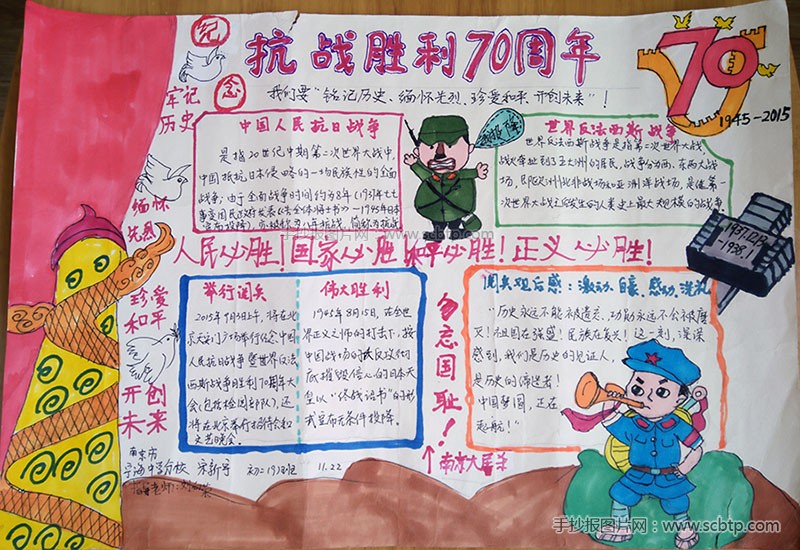 纪念
抗战胜利70周年
70
1945-2015
我们要“铭记历史、缅怀先烈、珍爱和平、开创未来”!
牢记
历史
缅怀
先烈
珍爱
和平
开创
未来
中国人民抗日战争
是指20世纪中期第二次世界大战中,
中国抵抗日本侵略的一场民族性的全面
战争;由于全面战争时间约为8年(1937年七七
投降
世界反法西斯战争
世界反法西斯战争是指第二次世界大战,
战场,即欧洲北非战场和亚洲洋战场,是继第一
次世界大战之后发生的人类史上最大规模的战争.
1937.12.13
-1938.1
人民必胜!国家必胜!和平必胜!正义必胜!
举行阅兵
2015年9月3日上午,将在北
京天安门广场举行纪念中国
人民抗日战争暨世界反法
西斯战争胜利70周年大
会(包括检阅部队),还
将在北京举行招待会和
文艺晚会。
伟大胜利
1945年8月15日,在全
世界正义之师的打击下,按
中国战场的反攻彻
底摧毁信心的日本天
皇以“终战诏书”的形
式宣布无条件投降。
勿忘国耻!
↑南京大屠杀
阅兵观后感:激动、自豪、感动、洗礼
“历史永远不能被遗忘、功勋永远不会被磨
灭!祖国在强盛!民族在复兴!这一刻,深深
感到,我们是历史的见证人,
是历史的缔造者!
中国梦圆,正在
起航!”
南京市
宁海中学分校 宋新宇 初二1918班 11.22
手抄报图片网:www.scbtp.com
手抄报图片网:www.scbtp.com